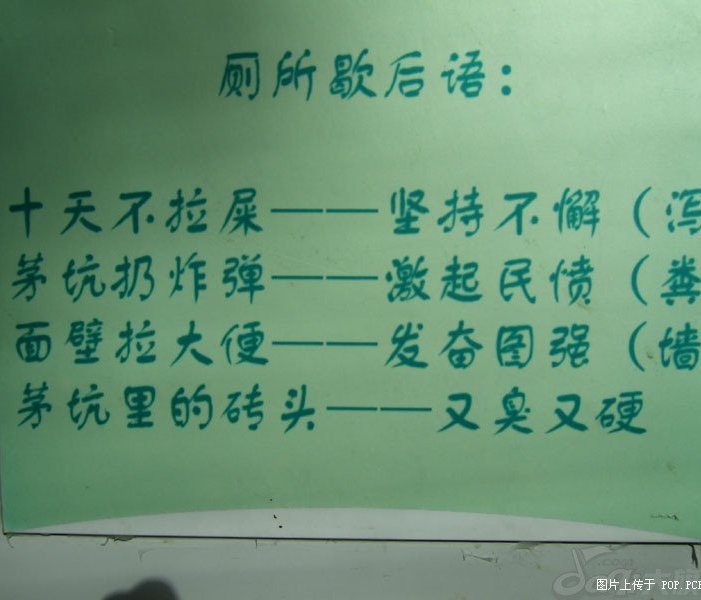 厕所歇后语：
十天不拉屎——坚持不懈（泻
茅坑扔炸弹——激起民愤（粪
面壁拉大便——发奋图强（墙
茅坑里的砖头——又臭又硬
图片上传于 POP.PC